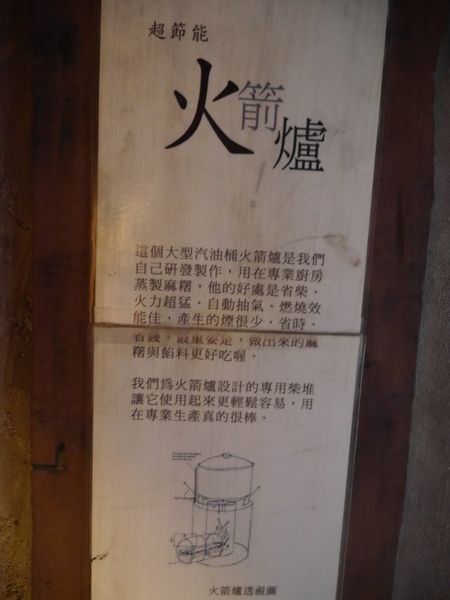 超節能
火箭爐
這個大型汽油桶火箭爐是我們
自己研發製作，用在專業廚房
蒸製麻糬，他的好處是省柴、
火力超猛、自動抽氣、燃燒效
能佳，產生的煙很少，省時、
省錢，最重要是，做出來的麻
糬與餡料更好吃喔。
我們為火箭爐設計的專用柴堆
讓它使用起來更輕鬆容易，用
在專業生產真的很棒。
火箭爐透視圖